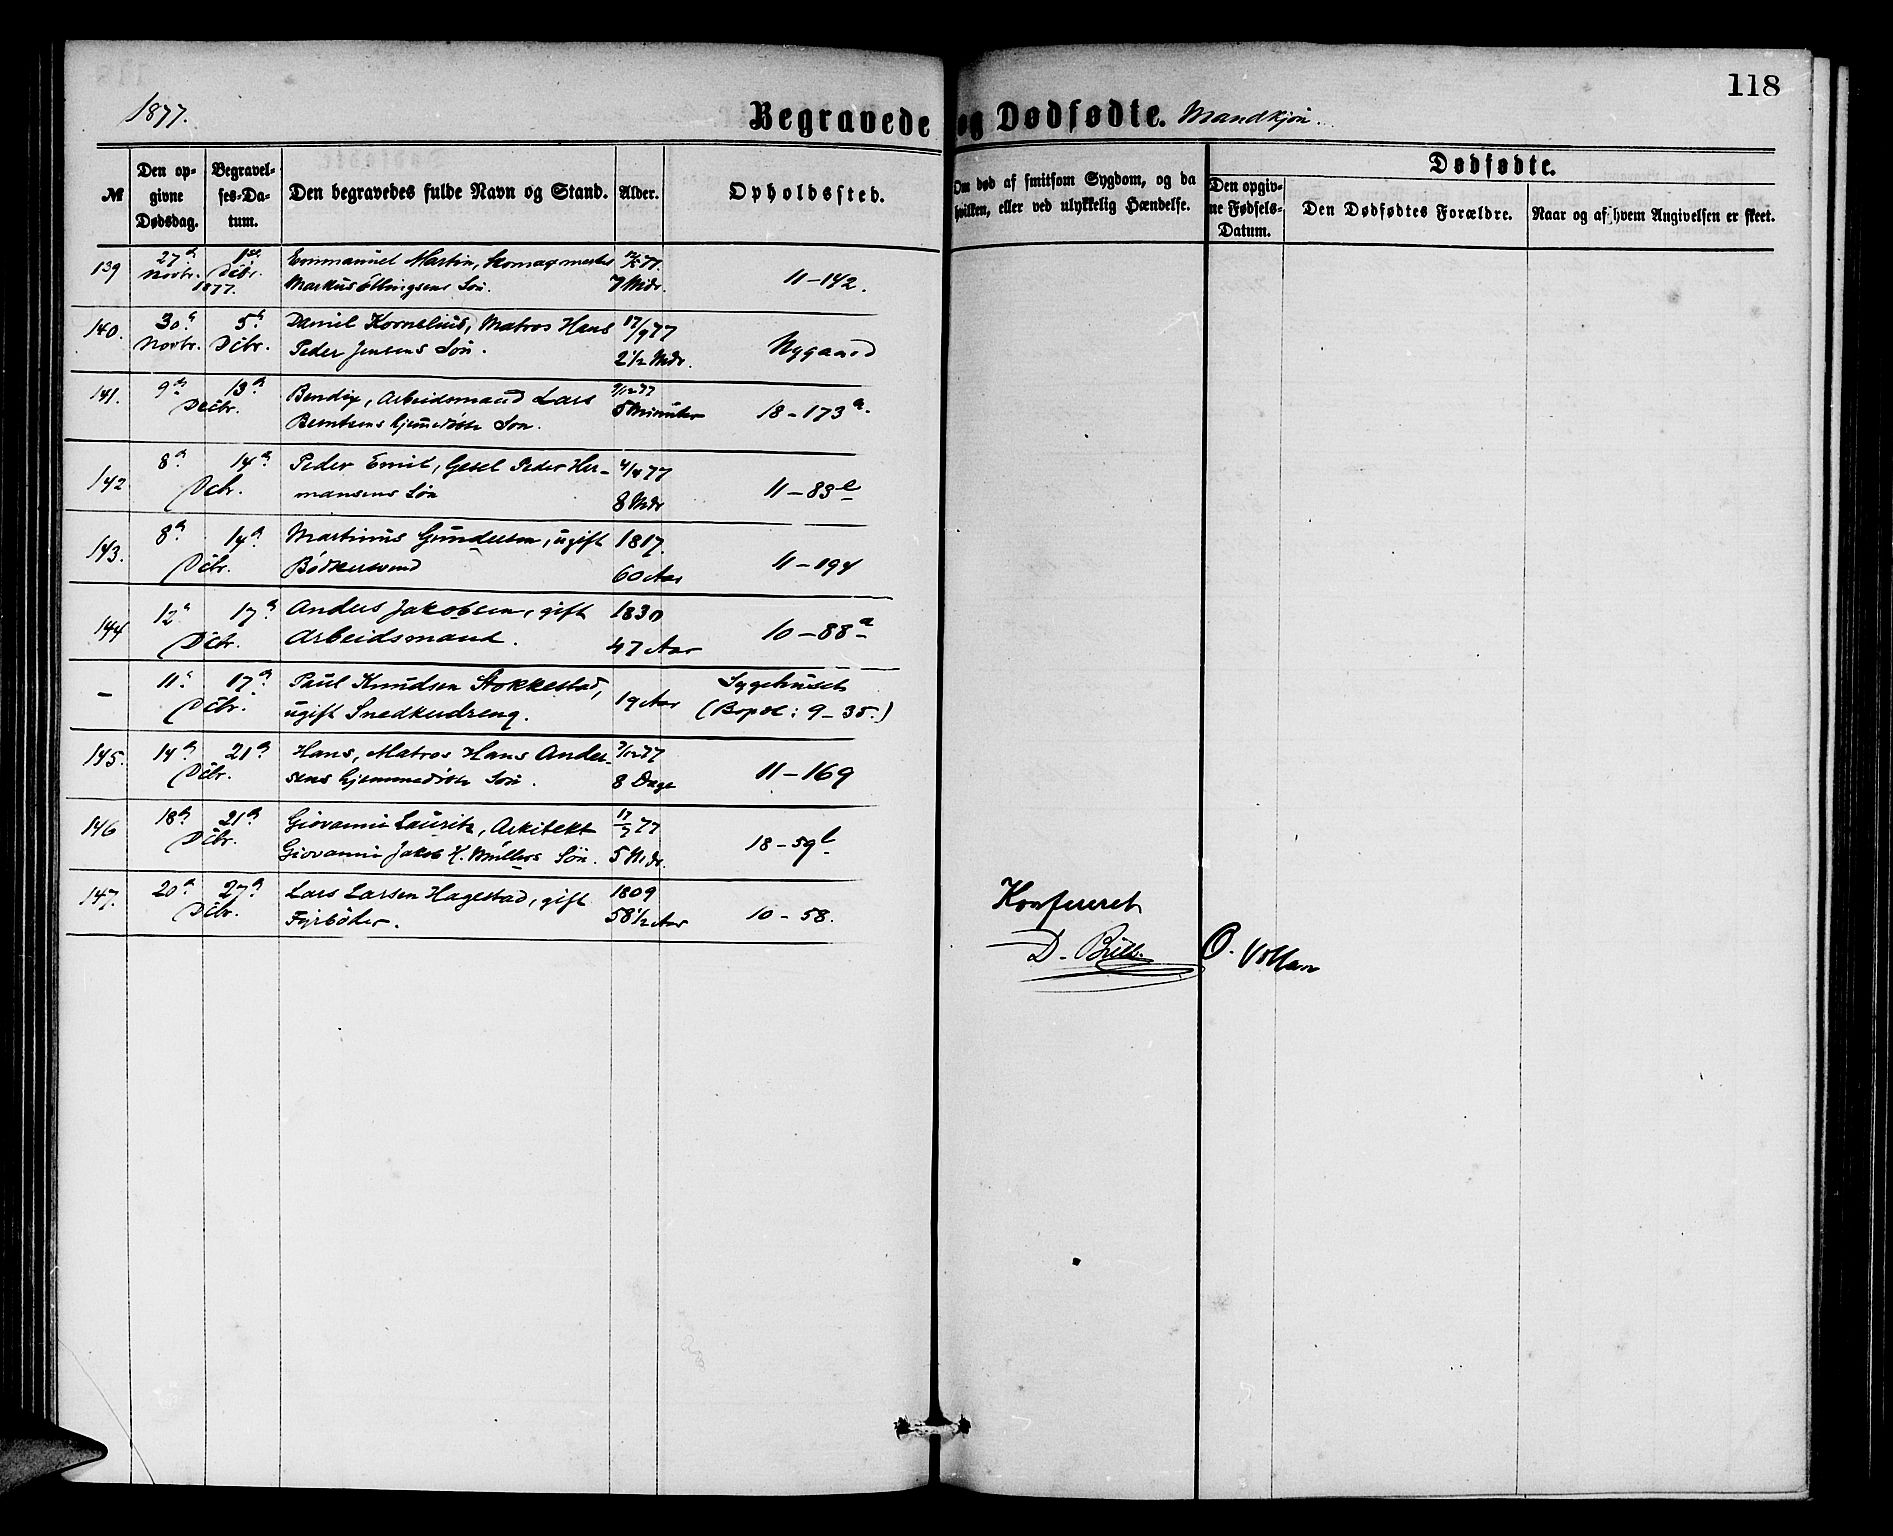 118
1877.
Begravede og Dødfødte. Mandkjøn.
№
Den opgivne Dødsdag.
Begravelses-Datum.
Den begravedes fulde Navn og Stand.
Alder.
Opholdssted.
Om død af smitsom Sygdom, og da hvilken, eller ved ulykkelig Hændelse.
Dødfødte.
Den opgivne Fødsels-Datum.
Den Dødfødtes Forældre.
Naar og af hvem Angivelsen er skeet.
139 27de 1ste Emmanuel Martin, Skomagermester 77.
Novbr. Dcbr. 1877. Markus Ellingsens Søn. 7 Mdr. 11-142.
140. 30te 5te Daniel Kornelius, Matros Hans 17/9 77
Novbr. Dcbr. Peder Jensens Søn. 2 1/2 Mdr. Nygaard
141. 9de 13de Bendix, Arbeidsmand Lars 9/12 77
Decbr. Berntsens hjemmedøbte Søn. 5 Minuter 18-173a.
142 8de 14de Peder Emil, Gesel Peder Her- 4/4 77
Dcbr. mansens Søn 8 Mdr 11-83b
143. 8de 14de Martinus Gundersen, ugift 1817.
Dcbr. Bødkersvend 60 Aar 11-194
144 12te 17de Anders Jakobsen, gift 1830
Dcbr. Arbeidsmand. 47 Aar 10-88a
- 11te 17de Paul Knudsen Stokkestad, Sygehuset
Dcbr. ugift Snedkerdreng. 19 Aar (Bopæl: 9-35.)
145. 14de 21de Hans, Matros Hans Ander- 7/12 77
Dcbr. sens hjemmedøbte Søn. 8 Dage 11-169
146 18de 21de Giovanni Lauritz, Arkitekt 17/7 77
Dcbr. Giovanni Jakob H. Müllers Søn. 5 Mdr. 18-59b
147. 20de 27de Lars Larsen Hagestad, gift 1809
Dcbr. Fyrbøder. 58 1/2 Aar 10-58.
Konfereret
D. O. Vollan